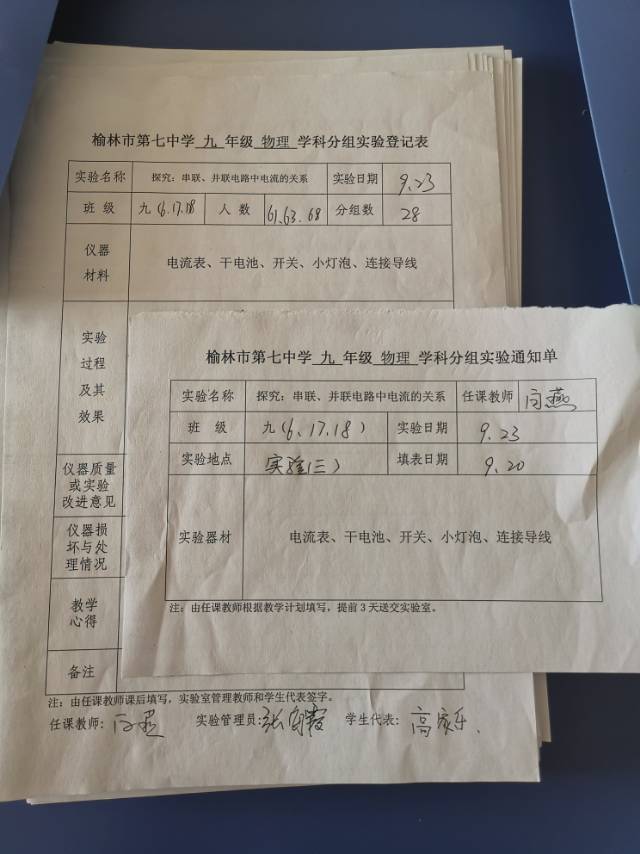 榆林市第七中学 九 年级 物理 学科分组实验登记表
实验名称 探究：串联、并联电路中电流的关系 实验日期 9.23
班 级 九(6.17.18 人 数 61.63.68 分组数 28
仪器
材料
电流表、干电池、开关、小灯泡、连接导线
实验
过程
及其
效果
仪器质量
或实验
改进意见
仪器损
坏与处
理情况
教学
心得
备注
注：由任课教师课后填写，实验室管理教师和学生代表签字。
任课教师： 实验管理员： 学生代表：高家乐.
榆林市第七中学 九 年级 物理 学科分组实验通知单
实验名称 探究：串联、并联电路中电流的关系 任课教师
班 级 九(6、17.18 ) 实验日期 9.23
实验地点 实验(三) 填表日期 9.20
实验器材 电流表、干电池、开关、小灯泡、连接导线
注：由任课教师根据教学计划填写，提前 3 天送交实验室。